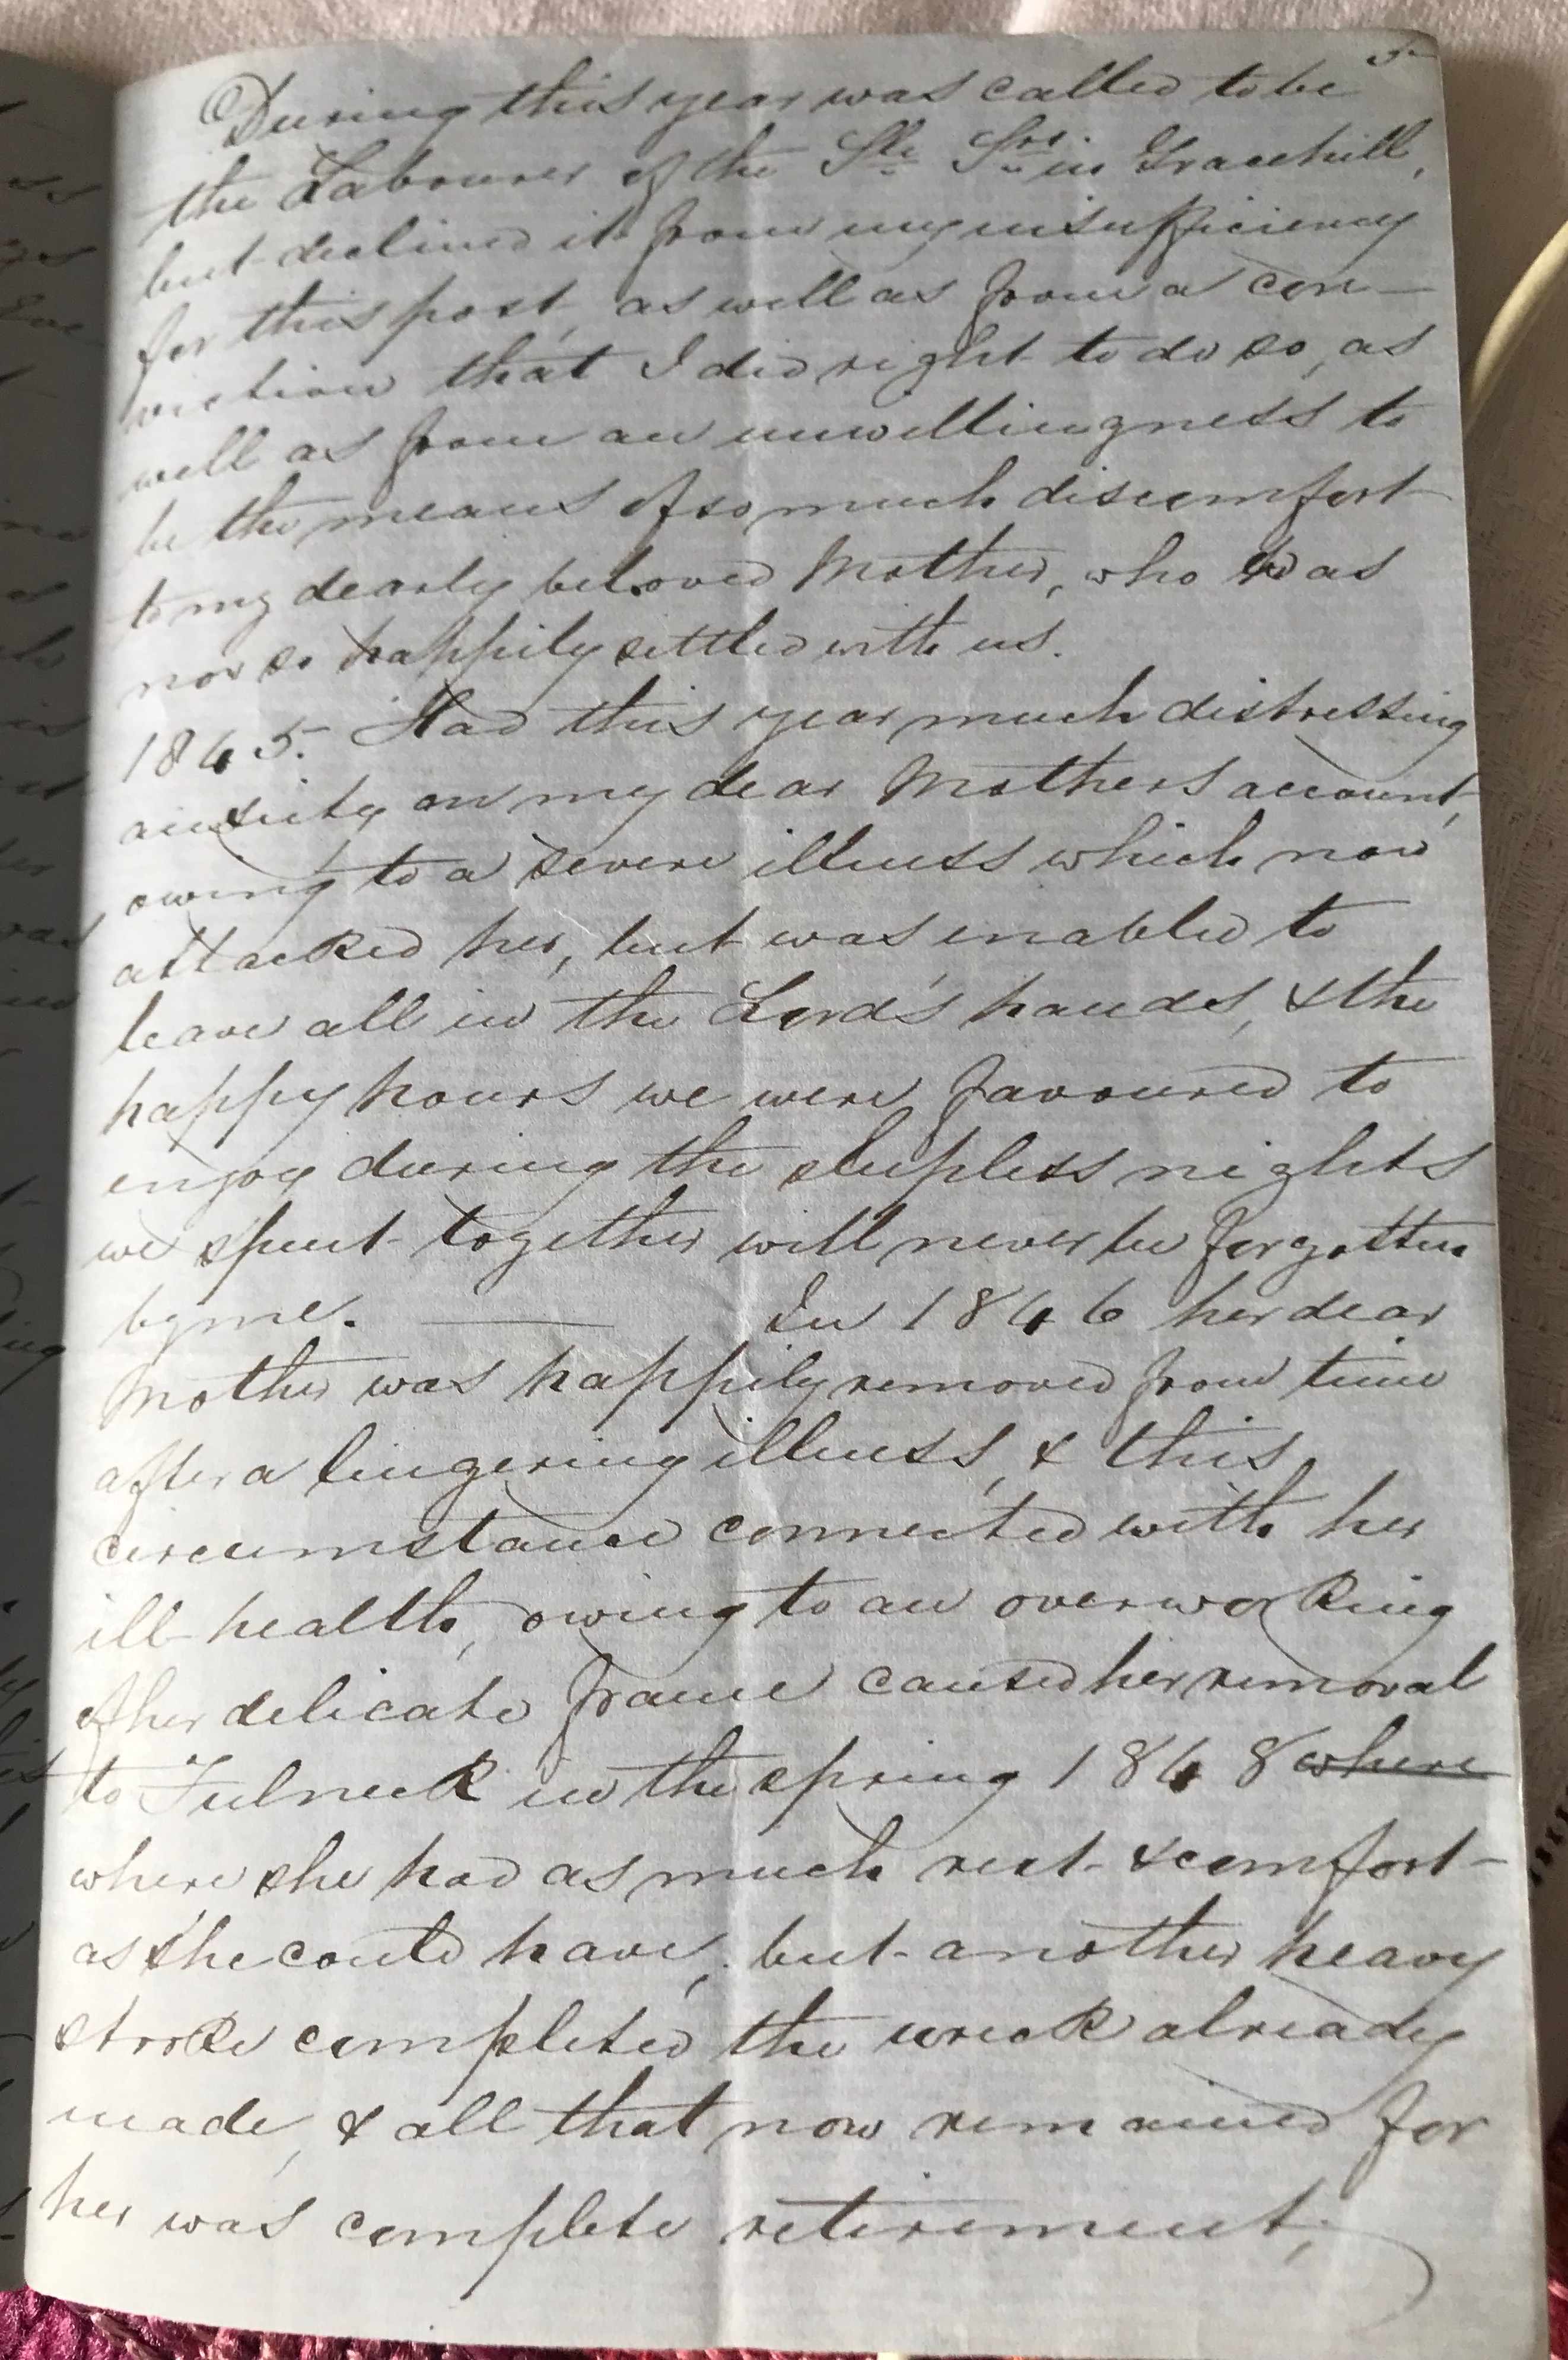 5
During this year was called to be
the Labourer of the Sle Srs in Gracehill,
but declined it from my insufficiency
for this post, as well as from a con-
viction that I did right to do so, as
well as from an unwillingness to
be the means of so much discomfort
to my dearly beloved Mother, who was
now so happily settled with us.
1845. Had this year much distressing
anxiety on my dear Mothers account,
owing to a severe illness which now
attacked her, but was enabled to
leave all in the Lord's hands, & the
happy hours we were favoured to
enjoy during the sleepless nights
we spent together will never be forgotten
by me. — In 1846 her dear
Mother was happily removed from time
after a lingering illness, & this
circumstance connected with her
ill health, owing to an overworking
of her delicate frame caused her removal
to Fulneck in the spring 1848 where
where she had as much rest & comfort
as she could have, but another heavy
stroke completed the wreck already
made, & all that now remained for
her was complete retirement,